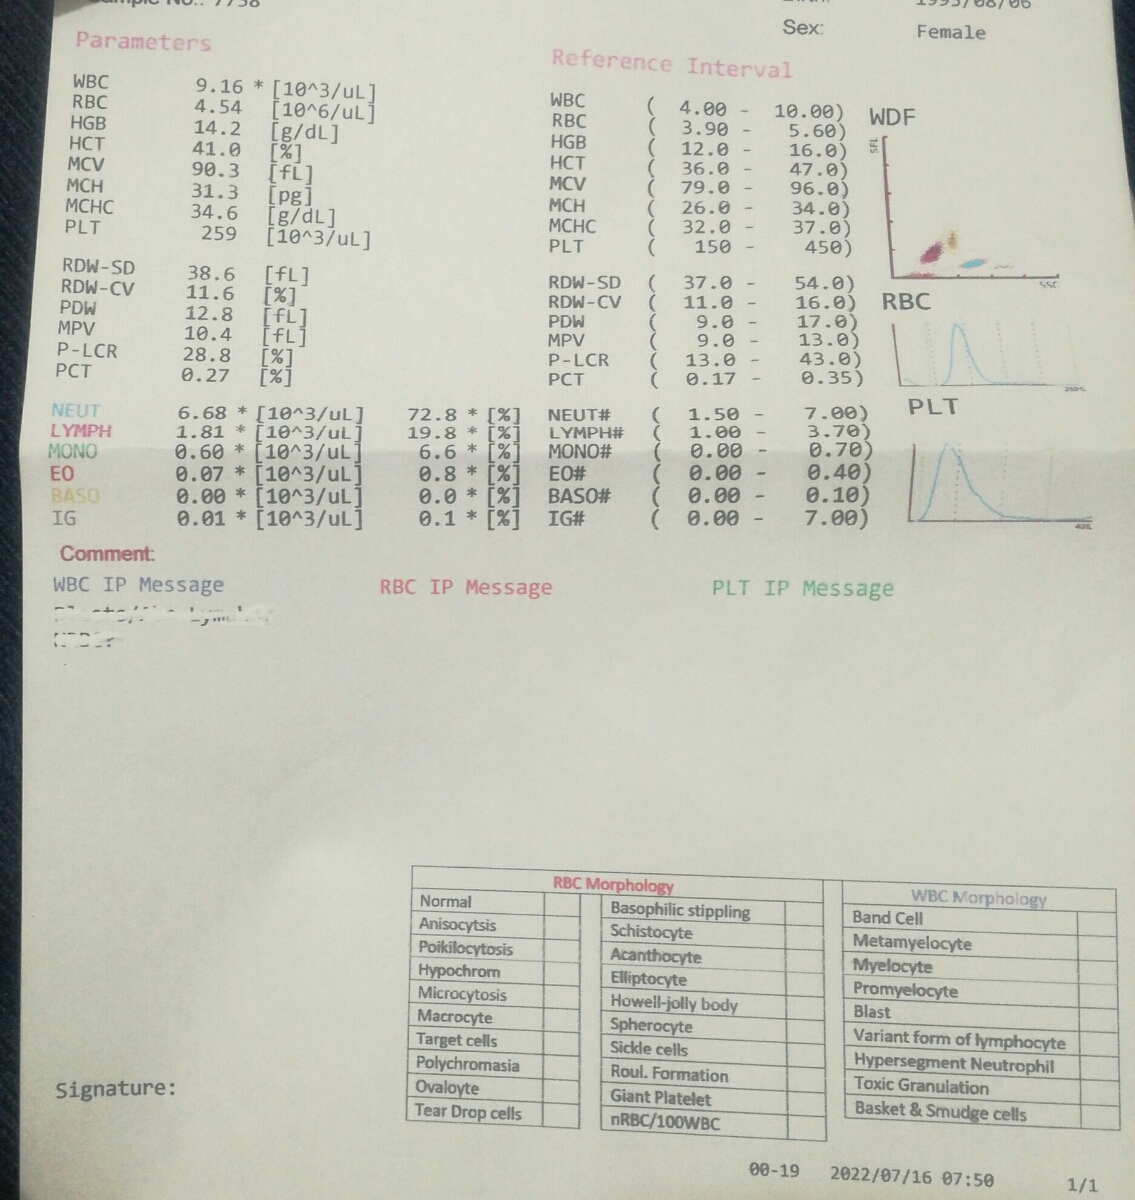 7738
1995/08/06
Sex: Female
Parameters
Reference Interval
WBC 9.16 * [10^3/uL] WBC ( 4.00 - 10.00)
RBC 4.54 [10^6/uL] RBC ( 3.90 - 5.60)
HGB 14.2 [g/dL] HGB ( 12.0 - 16.0)
HCT 41.0 [%] HCT ( 36.0 - 47.0)
MCV 90.3 [fL] MCV ( 79.0 - 96.0)
MCH 31.3 [pg] MCH ( 26.0 - 34.0)
MCHC 34.6 [g/dL] MCHC ( 32.0 - 37.0)
PLT 259 [10^3/uL] PLT ( 150 - 450)
RDW-SD 38.6 [fL] RDW-SD ( 37.0 - 54.0)
RDW-CV 11.6 [%] RDW-CV ( 11.0 - 16.0)
PDW 12.8 [fL] PDW ( 9.0 - 17.0)
MPV 10.4 [fL] MPV ( 9.0 - 13.0)
P-LCR 28.8 [%] P-LCR ( 13.0 - 43.0)
PCT 0.27 [%] PCT ( 0.17 - 0.35)
NEUT 6.68 * [10^3/uL] 72.8 * [%] NEUT# ( 1.50 - 7.00)
LYMPH 1.81 * [10^3/uL] 19.8 * [%] LYMPH# ( 1.00 - 3.70)
MONO 0.60 * [10^3/uL] 6.6 * [%] MONO# ( 0.00 - 0.70)
EO 0.07 * [10^3/uL] 0.8 * [%] EO# ( 0.00 - 0.40)
BASO 0.00 * [10^3/uL] 0.0 * [%] BASO# ( 0.00 - 0.10)
IG 0.01 * [10^3/uL] 0.1 * [%] IG# ( 0.00 - 7.00)
WDF
SFL
SSC
RBC
250fL
PLT
40fL
Comment:
WBC IP Message RBC IP Message PLT IP Message
RBC Morphology WBC Morphology
Normal Basophilic stippling Band Cell
Anisocytsis Schistocyte Metamyelocyte
Poikilocytosis Acanthocyte Myelocyte
Hypochrom Elliptocyte Promyelocyte
Microcytosis Howell-jolly body Blast
Macrocyte Spherocyte Variant form of lymphocyte
Target cells Sickle cells Hypersegment Neutrophil
Polychromasia Roul. Formation Toxic Granulation
Ovaloyte Giant Platelet Basket & Smudge cells
Tear Drop cells nRBC/100WBC
Signature:
00-19 2022/07/16 07:50 1/1